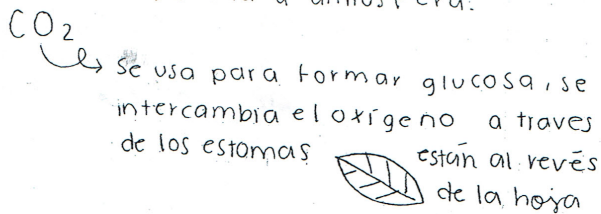 CO2
se usa para formar glucosa, se
intercambia el oxígeno a traves
de los estomas están al revés
de la hoja